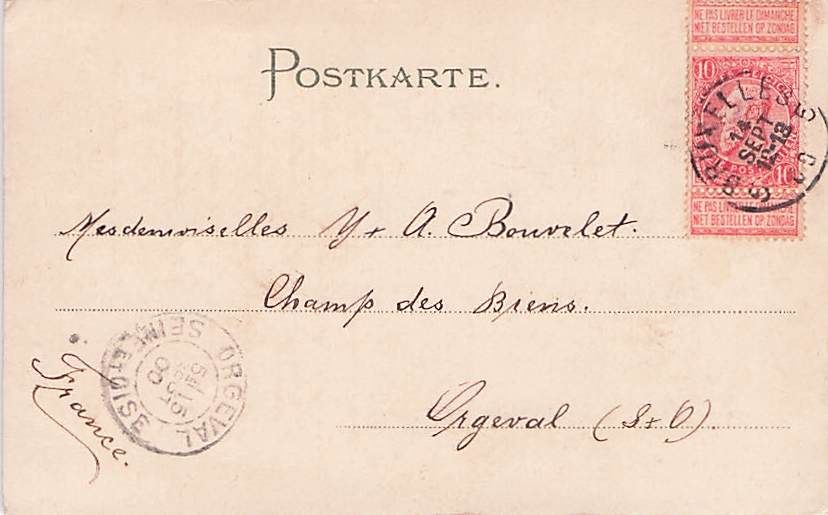 NE PAS LIVRER LE DIMANCHE
NIET BESTELLEN OP ZONDAG
POSTKARTE.
10
BRUXELLES 5
14
SEPT
12-18
10
NE PAS LIVRER LE DIMANCHE
NIET BESTELLEN OP ZONDAG
Mesdemoiselles Y + A. Bouvelet.
Champ des Biens.
Orgeval (S + O)
France.
ORGEVAL
SEINE ET OISE
15
00